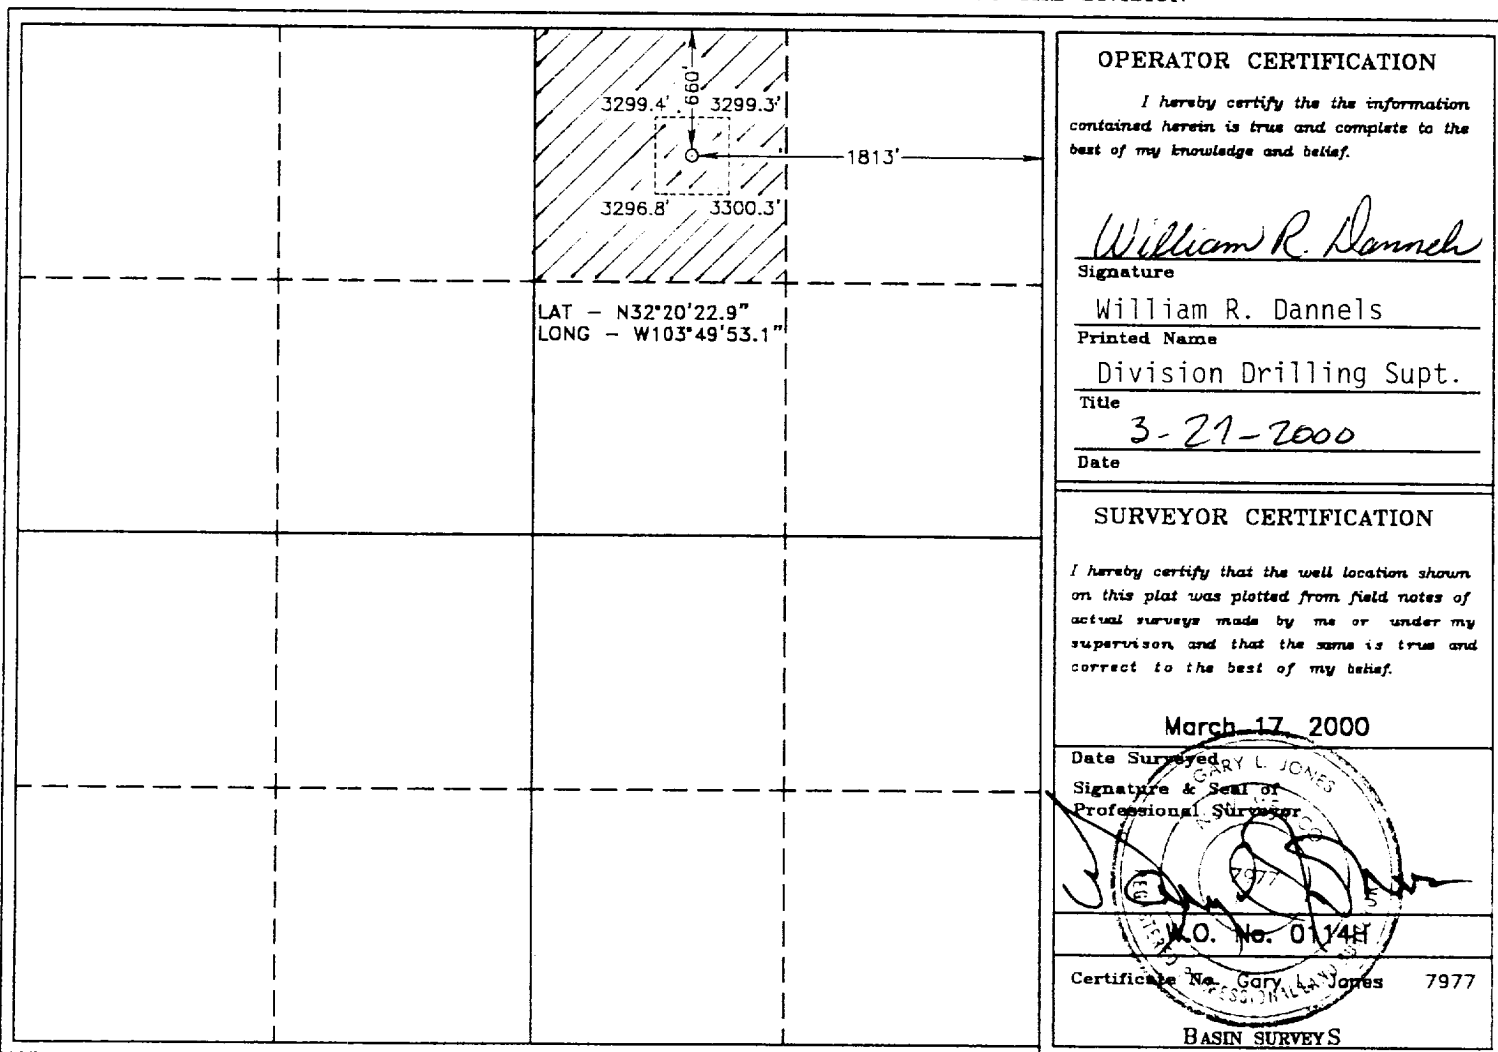 660'
3299.4' 3299.3'
1813'
3296.8' 3300.3'
LAT – N32°20'22.9"
LONG – W103°49'53.1"
OPERATOR CERTIFICATION
I hereby certify the the information
contained herein is true and complete to the
best of my knowledge and belief.
William R. Dannels
Signature
William R. Dannels
Printed Name
Division Drilling Supt.
Title
3-21-2000
Date
SURVEYOR CERTIFICATION
I hereby certify that the well location shown
on this plat was plotted from field notes of
actual surveys made by me or under my
supervison and that the same is true and
correct to the best of my belief.
March 17, 2000
Date Surveyed
Signature & Seal of
Professional Surveyor
GARY L. JONES
NEW MEXICO
7977
REGISTERED PROFESSIONAL LAND
W.O. No. 0114H
Certificate No. Gary L. Jones 7977
BASIN SURVEYS